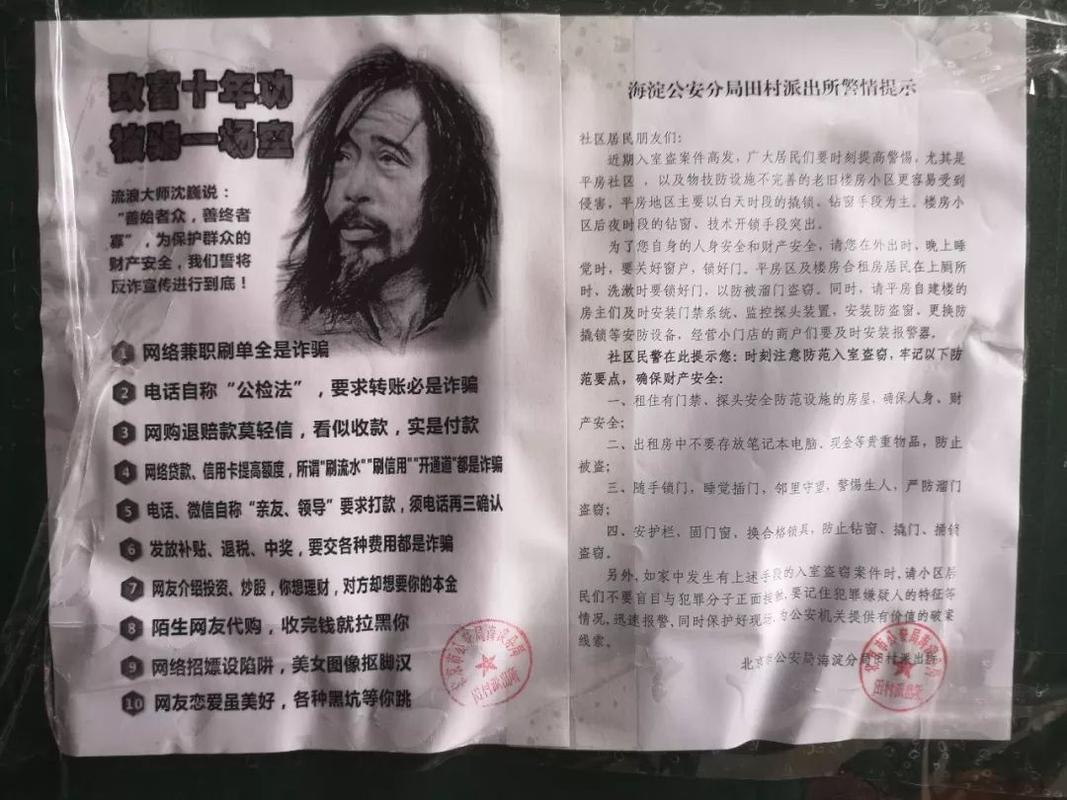 致富十年功
被骗一场空
流浪大师沈巍说：
“善始者众，善终者
寡”，为保护群众的
财产安全，我们誓将
反诈宣传进行到底！
1 网络兼职刷单全是诈骗
2 电话自称“公检法”，要求转账必是诈骗
3 网购退赔款莫轻信，看似收款，实是付款
4 网络贷款、信用卡提高额度，所谓“刷流水”“刷信用”“开通道”都是诈骗
5 电话、微信自称“亲友、领导”要求打款，须电话再三确认
6 发放补贴、退税、中奖，要交各种费用都是诈骗
7 网友介绍投资、炒股，你想理财，对方却想要你的本金
8 陌生网友代购，收完钱就拉黑你
9 网络招嫖设陷阱，美女图像抠脚汉
10 网友恋爱虽美好，各种黑坑等你跳
北京市公安局海淀分局
田村派出所
海淀公安分局田村派出所警情提示
社区居民朋友们：
近期入室盗案件高发，广大居民们要时刻提高警惕，尤其是
平房社区，以及物技防设施不完善的老旧楼房小区更容易受到
侵害，平房地区主要以白天时段的撬锁、钻窗手段为主。楼房小
区后夜时段的钻窗、技术开锁手段突出。
为了您自身的人身安全和财产安全，请您在外出时，晚上睡
觉时，要关好窗户，锁好门。平房区及楼房合租房居民在上厕所
时、洗漱时要锁好门，以防被溜门盗窃。同时，请平房自建楼的
房主们及时安装门禁系统、监控探头装置，安装防盗窗，更换防
撬锁等安防设备，经营小门店的商户们要及时安装报警器。
社区民警在此提示您：时刻注意防范入室盗窃，牢记以下防
范要点，确保财产安全：
一、租住有门禁、探头安全防范设施的房屋，确保人身、财
产安全；
二、出租房中不要存放笔记本电脑、现金等贵重物品，防止
被盗；
三、随手锁门，睡觉插门，邻里守望，警惕生人，严防溜门
盗窃；
四、安护栏，固门窗，换合格锁具，防止钻窗、撬门、捅锁
盗窃。
另外，如家中发生有上述手段的入室盗窃案件时，请小区居
民们不要盲目与犯罪分子正面接触，要记住犯罪嫌疑人的特征等
情况，迅速报警，同时保护好现场，为公安机关提供有价值的破案
线索。
北京市公安局海淀分局田村派出所
北京市公安局海淀分局
田村派出所